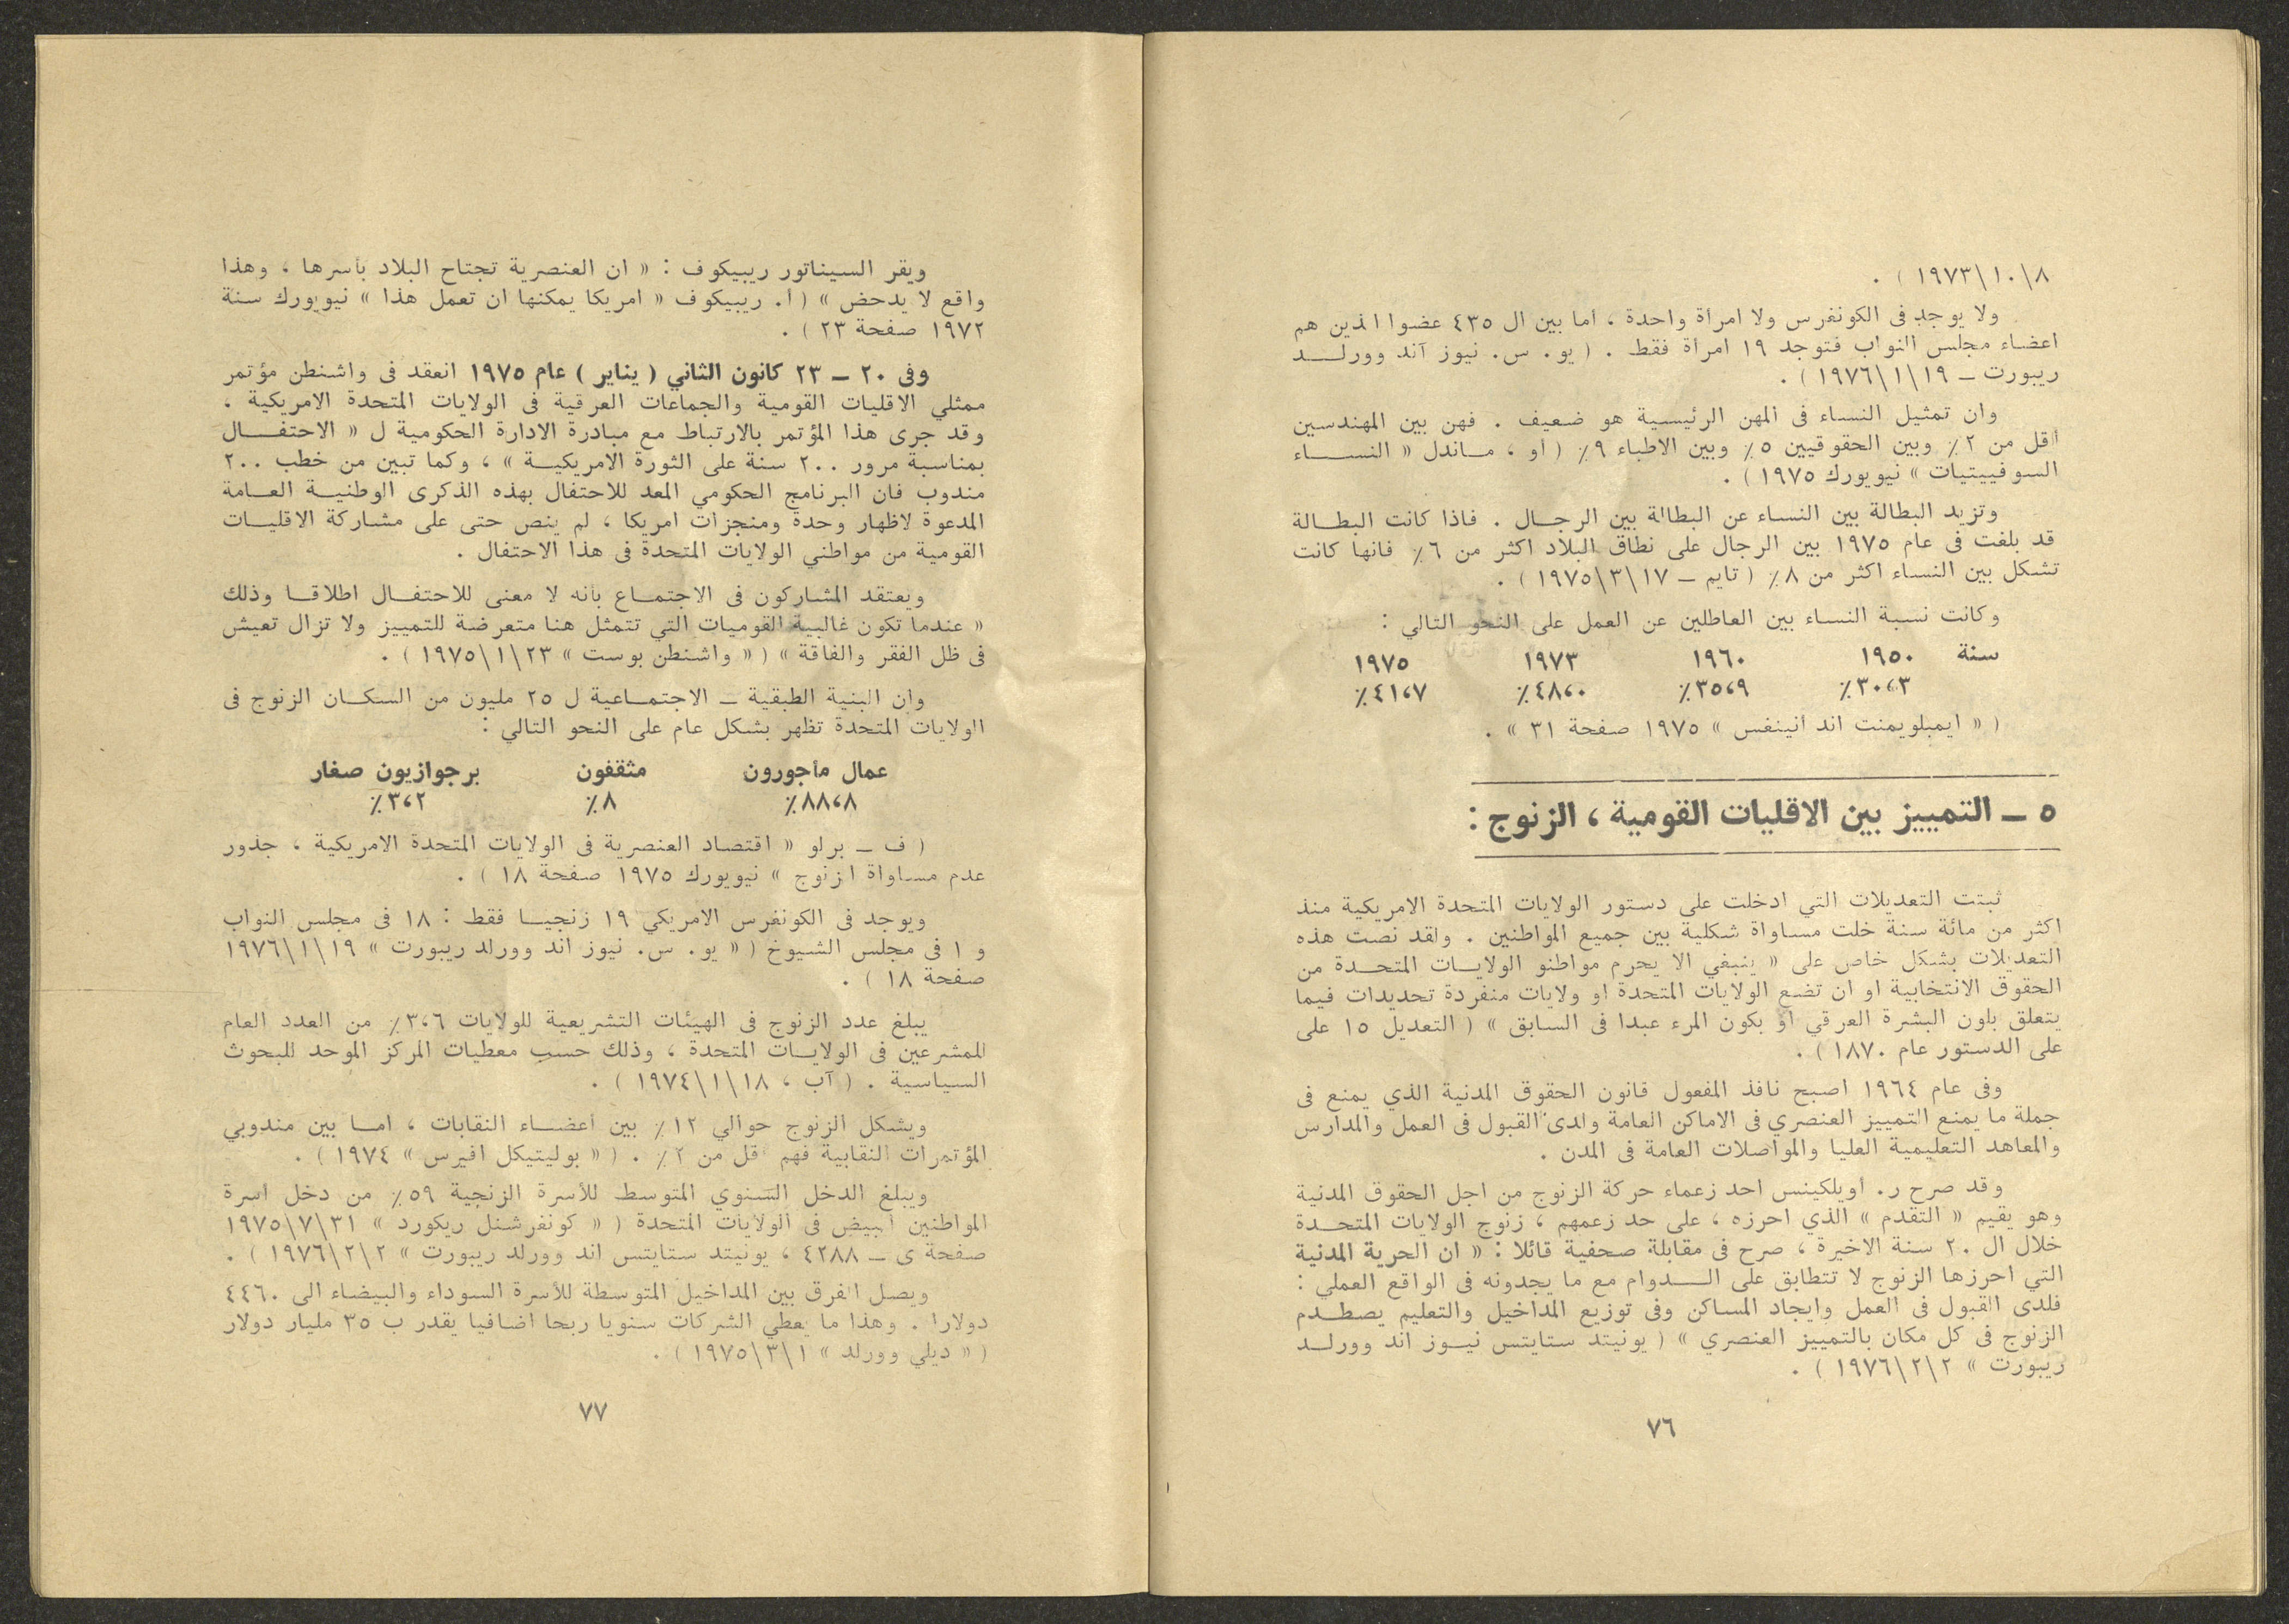 ٨\١٠\١٩٧٣ ) .
ولا يوجد فى الكونغرس ولا امرأة واحدة ، اما بين ال ٤٣٥ عضوا الذين هم
اعضاء مجلس النواب فتوجد ١٩ امرأة فقط . ( يو. س. نيوز آند وورلــد
ريبورت ــ ١٩\١\١٩٧٦ ) .
وان تمثيل النساء فى المهن الرئيسية هو ضعيف . فهن بين المهندسين
اقل من ٢٪ وبين الحقوقيين ٥٪ وبين الاطباء ٩٪ ( أو ، مــاندل « النســـاء
السوفييتيات » نيويورك ١٩٧٥ ) .
وتزيد البطالة بين النساء عن البطالة بين الرجــال . فاذا كانت البطــالة
قد بلغت فى عام ١٩٧٥ بين الرجال على نطاق البلاد اكثر من ٦٪ فانها كانت
تشكل بين النساء اكثر من ٨٪ ( تايم ــ ١٧\٣\١٩٧٥ ) .
وكانت نسبة النساء بين العاطلين عن العمل على النحو التالي :
سنة ١٩٥٠ ١٩٦٠ ١٩٧٣ ١٩٧٥
٣٠،٣٪ ٣٥،٩٪ ٤٨،٠٪ ٤١،٧٪
( « ايمبلويمنت اند أنينغس » ١٩٧٥ صفحة ٣١ » .
٥ ــ التمييز بين الاقليات القومية ، الزنوج :
ثبتت التعديلات التي ادخلت على دستور الولايات المتحدة الامريكية منذ
اكثر من مائة سنة خلت مساواة شكلية بين جميع المواطنين . ولقد نصت هذه
التعديلات بشكل خاص على « ينبغي الا يحرم مواطنو الولايــات المتحــدة من
الحقوق الانتخابية او ان تضع الولايات المتحدة او ولايات منفردة تحديدات فيما
يتعلق بلون البشرة العرقي او بكون المرء عبدا فى السابق » ( التعديل ١٥ على
على الدستور عام ١٨٧٠ ) .
وفى عام ١٩٦٤ اصبح نافذ المفعول قانون الحقوق المدنية الذي يمنع فى
جملة ما يمنع التمييز العنصري فى الاماكن العامة ولدى القبول فى العمل والمدارس
والمعاهد التعليمية العليا والمواصلات العامة فى المدن .
وقد صرح ر. أويلكينس احد زعماء حركة الزنوج من اجل الحقوق المدنية
وهو يقيم « التقدم » الذي احرزه ، على حد زعمهم ، زنوج الولايات المتحــدة
خلال ال ٢٠ سنة الاخيرة ، صرح فى مقابلة صحفية قائلا : « ان الحرية المدنية
التي احرزها الزنوج لا تتطابق على الــــدوام مع ما يجدونه فى الواقع العملي :
فلدى القبول فى العمل وايجاد المساكن وفى توزيع المداخيل والتعليم يصطــدم
الزنوج فى كل مكان بالتمييز العنصري » ( يونيتد ستايتس نيــوز اند وورلــد
ريبورت » ٢\٢\١٩٧٦ ) .
٧٦
ويقر السيناتور ريبيكوف : « ان العنصرية تجتاح البلاد بأسرها ، وهذا
واقع لا يدحض » ( أ. ريبيكوف « امريكا يمكنها ان تعمل هذا » نيويورك سنة
١٩٧٢ صفحة ٢٣ ) .
وفى ٢٠ ــ ٢٣ كانون الثاني ( يناير ) عام ١٩٧٥ انعقد فى واشنطن مؤتمر
ممثلي الاقليات القومية والجماعات العرقية فى الولايات المتحدة الامريكية .
وقد جرى هذا المؤتمر بالارتباط مع مبادرة الادارة الحكومية ل « الاحتفــــال
بمناسبة مرور ٢٠٠ سنة على الثورة الامريكيــة » ، وكما تبين من خطب ٢٠٠
مندوب فان البرنامج الحكومي المعد للاحتفال بهذه الذكرى الوطنيــة العــامة
المدعوة لاظهار وحدة ومنجزات امريكا ، لم ينص حتى على مشاركة الاقليــات
القومية من مواطني الولايات المتحدة فى هذا الاحتفال .
ويعتقد المشاركون فى الاجتمــاع بأنه لا معنى للاحتفــال اطلاقــا وذلك
« عندما تكون غالبية القوميات التي تتمثل هنا متعرضة للتمييز ولا تزال تعيش
فى ظل الفقر والفاقة » ( « واشنطن بوست » ٢٣\١\١٩٧٥ ) .
وان البنية الطبقية ــ الاجتمــاعية ل ٢٥ مليون من السكــان الزنوج فى
الولايات المتحدة تظهر بشكل عام على النحو التالي :
عمال مأجورون مثقفون برجوازيون صغار
٨٨،٨٪ ٨٪ ٣،٢٪
( ف ــ برلو « اقتصاد العنصرية فى الولايات المتحدة الامريكية ، جذور
عدم مساواة الزنوج » نيويورك ١٩٧٥ صفحة ١٨ ) .
ويوجد فى الكونغرس الامريكي ١٩ زنجيــا فقط : ١٨ فى مجلس النواب
و ١ فى مجلس الشيوخ ( « يو. س. نيوز اند وورلد ريبورت » ١٩\١\١٩٧٦
صفحة ١٨ ) .
يبلغ عدد الزنوج فى الهيئات التشريعية للولايات ٣،٦٪ من العدد العام
للمشرعين فى الولايــات المتحدة ، وذلك حسب معطيات المركز الموحد للبحوث
السياسية . ( آب ، ١٨\١\١٩٧٤ ) .
ويشكل الزنوج حوالي ١٢٪ بين أعضــاء النقابات ، امــا بين مندوبي
المؤتمرات النقابية فهم اقل من ٢٪ . ( « بوليتيكل افيرس » ١٩٧٤ ) .
ويبلغ الدخل السنوي المتوسط للأسرة الزنجية ٥٩٪ من دخل أسرة
المواطنين البيض فى الولايات المتحدة ( « كونغرشنل ريكورد » ٣١\٧\١٩٧٥
صفحة ى ــ ٤٢٨٨ ، يونيتد ستايتس اند وورلد ريبورت » ٢\٢\١٩٧٦ ) .
ويصل الفرق بين المداخيل المتوسطة للأسرة السوداء والبيضاء الى ٤٤٦٠
دولارا . وهذا ما يعطي الشركات سنويا ربحا اضافيا يقدر ب ٣٥ مليار دولار
( « ديلي وورلد » ١\٣\١٩٧٥ ) .
٧٧